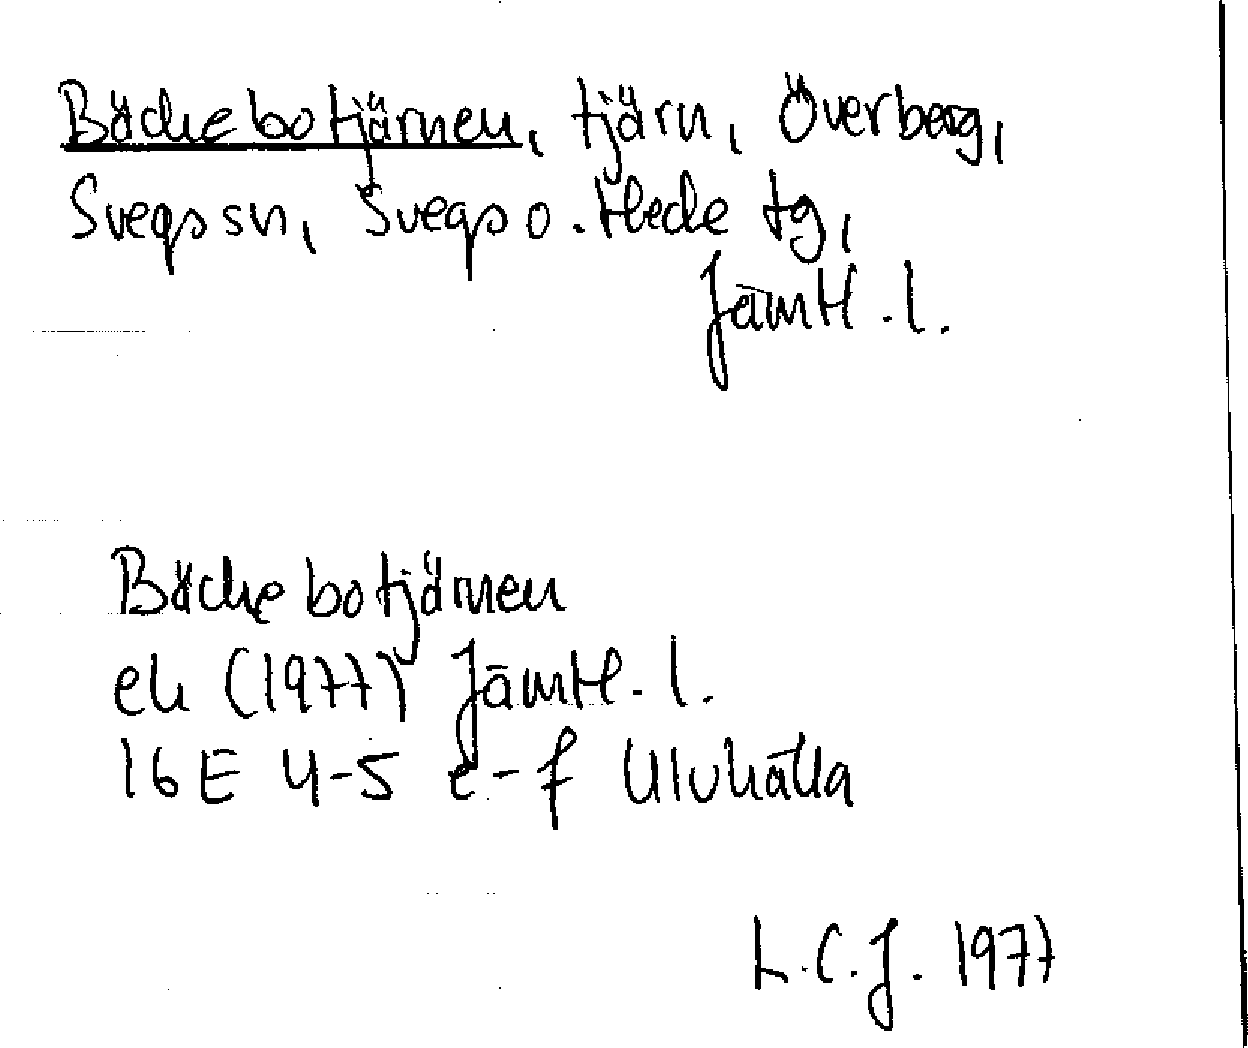 Bäckebotjärnen, tjärn, Överberg,
Svegs sn, Svegs o. Hede tg,
Jämtl. l.
Bäckebotjärnen
ek (1977) Jämtl. l.
16E 4-5 e-f Ulvkälla
L.C.J. 1977